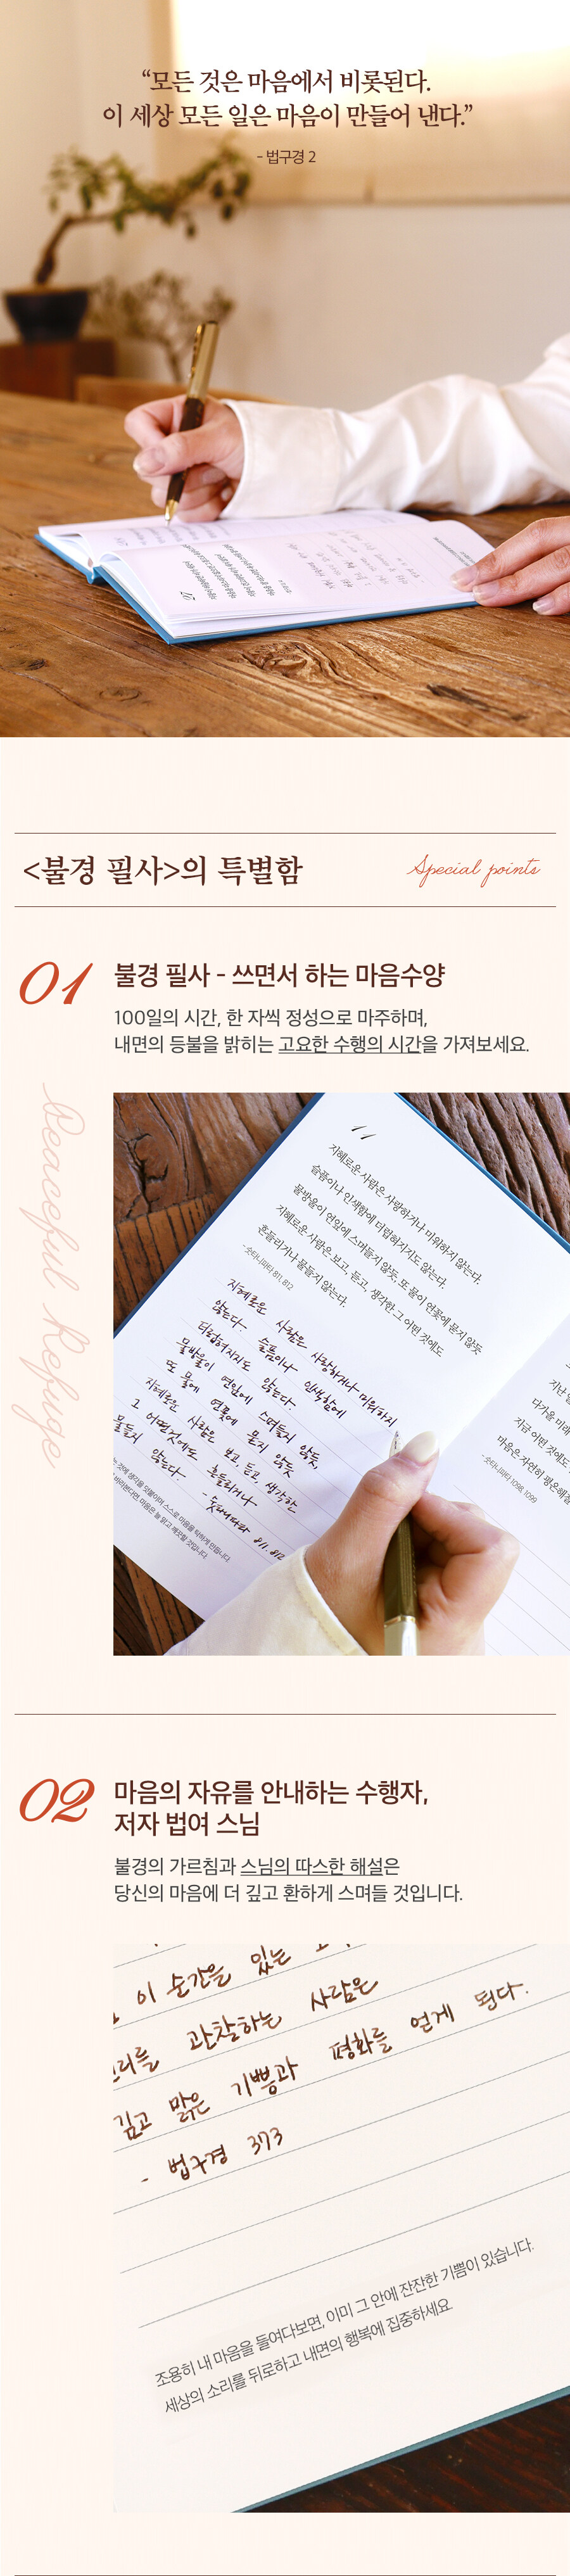 “모든 것은 마음에서 비롯된다.
이 세상 모든 일은 마음이 만들어 낸다.”
- 법구경 2
07
<불경 필사>의 특별함
Special points
01
불경 필사 - 쓰면서 하는 마음수양
100일의 시간, 한 자씩 정성으로 마주하며,
내면의 등불을 밝히는 고요한 수행의 시간을 가져보세요.
Peaceful Refuge
11
지혜로운 사람은 사랑하거나 미워하지 않는다.
슬픔이나 인색함에 더럽혀지지도 않는다.
물방울이 연잎에 스며들지 않듯, 또 물이 연꽃에 묻지 않듯
지혜로운 사람은 보고, 듣고, 생각한 그 어떤 것에도
흔들리거나 물들지 않는다.
- 숫타니파타 811, 812
지혜로운 사람은 사랑하거나 미워하지
않는다. 슬픔이나 인색함에
더럽혀지지도 않는다.
물방울이 연잎에 스며들지 않듯,
또 물에 연꽃에 묻지 않듯
지혜로운 사람은 보고, 듣고, 생각한
그 어떤것에도 흔들리거나
물들지 않는다.
- 숫타니파타 811. 812
는 것에 생각을 덧붙이며 스스로 마음을 탁하게 만듭니다.
바라본다면, 마음은 늘 맑고 깨끗할 것입니다.
지난 날
다가올 미래
지금 어떤 것에도
마음은 자연히 평온해질
- 숫타니파타 1098, 1099
02
마음의 자유를 안내하는 수행자,
저자 법여 스님
불경의 가르침과 스님의 따스한 해설은
당신의 마음에 더 깊고 환하게 스며들 것입니다.
이 순간을 있는
관찰하는 사람은
깊고 맑은 기쁨과 평화를 얻게 된다.
- 법구경 373
조용히 내 마음을 들여다보면, 이미 그 안에 잔잔한 기쁨이 있습니다.
세상의 소리를 뒤로하고 내면의 행복에 집중하세요.